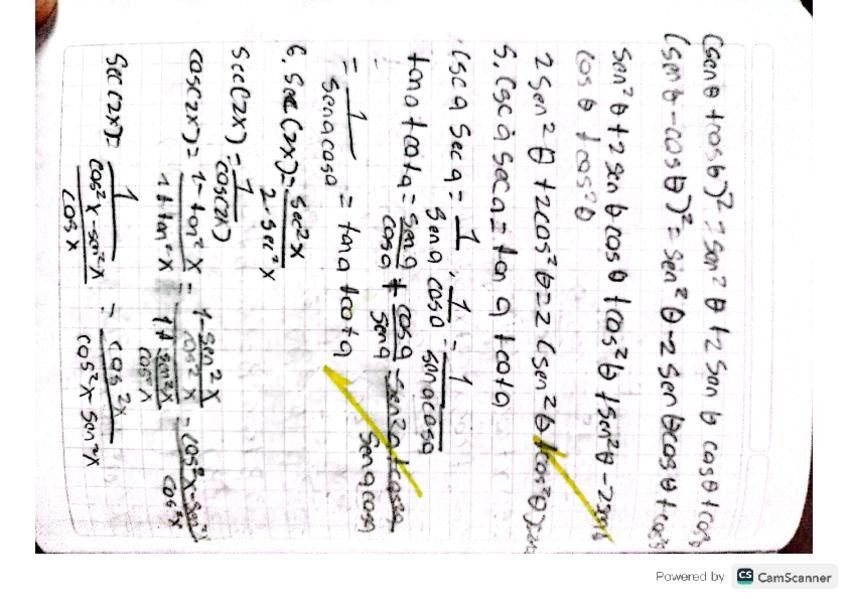 (senθ + cosθ)² = sen²θ + 2 senθ cosθ + cos²θ
(senθ - cosθ)² = sen²θ - 2 senθ cosθ + cos²θ
sen²θ + 2 senθ cosθ + cos²θ + sen²θ - 2senθ
cosθ + cos²θ
2 sen²θ + 2cos²θ = 2 (sen²θ + cos²θ)
5. Csc a sec a = tan a + cot a
Csc a sec a = 1/sen a · 1/cos a = 1/sen a cos a
tan a + cot a = sen a/cos a + cos a/sen a = sen²a + cos²a/sen a cos a
= 1/sen a cos a = tan a + cot a
6. Sec (2x) = sec²x/2 - sec²x
Sec (2x) = 1/cos(2x)
cos(2x) = 1 - tan²x/1 + tan²x = 1 - sen²x/cos²x/1 + sen²x/cos²x = cos²x - sen²x/cos²x
Sec (2x) = 1/cos²x - sen²x/cos x = cos²x/cos²x - sen²x
Powered by CS CamScanner